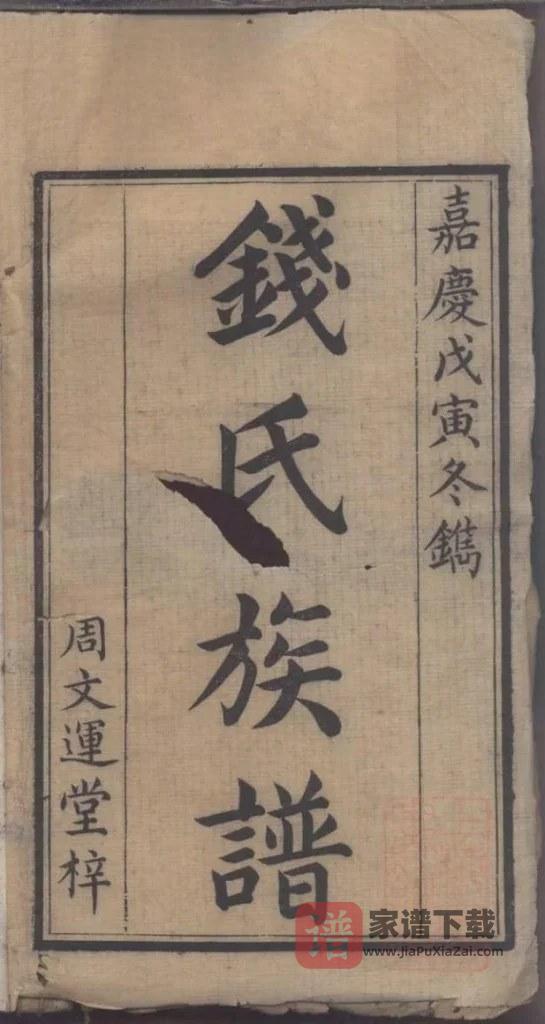 嘉慶戊寅冬鐫
錢氏族譜
周文運堂梓
谱
家谱下载
www.JiaPuXiaZai.com